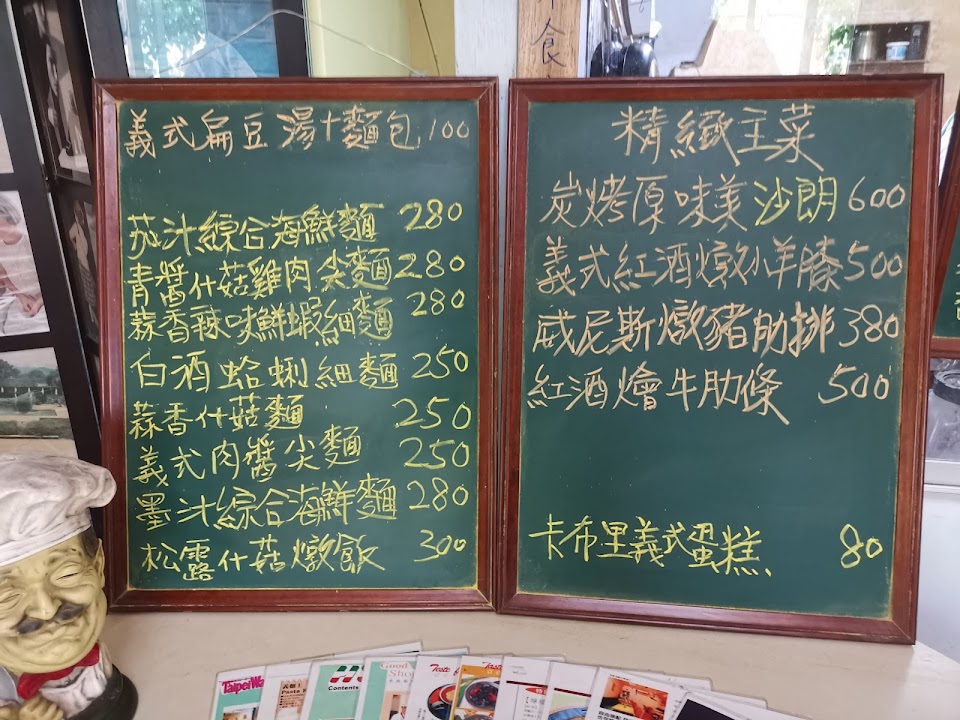 食
義式扁豆湯+麵包 100
茄汁綜合海鮮麵 280
青醬什菇雞肉尖麵 280
蒜香辣味鮮蝦細麵 280
白酒蛤蜊細麵 250
蒜香什菇麵 250
義式肉醬尖麵 250
墨汁綜合海鮮麵 280
松露什菇燉飯 300
精緻主菜
炭烤原味美沙朗 600
義式紅酒燉小羊膝 500
威尼斯燉豬肋排 380
紅酒燴牛肋條 500
卡布里義式蛋糕 80
Contents
Taste